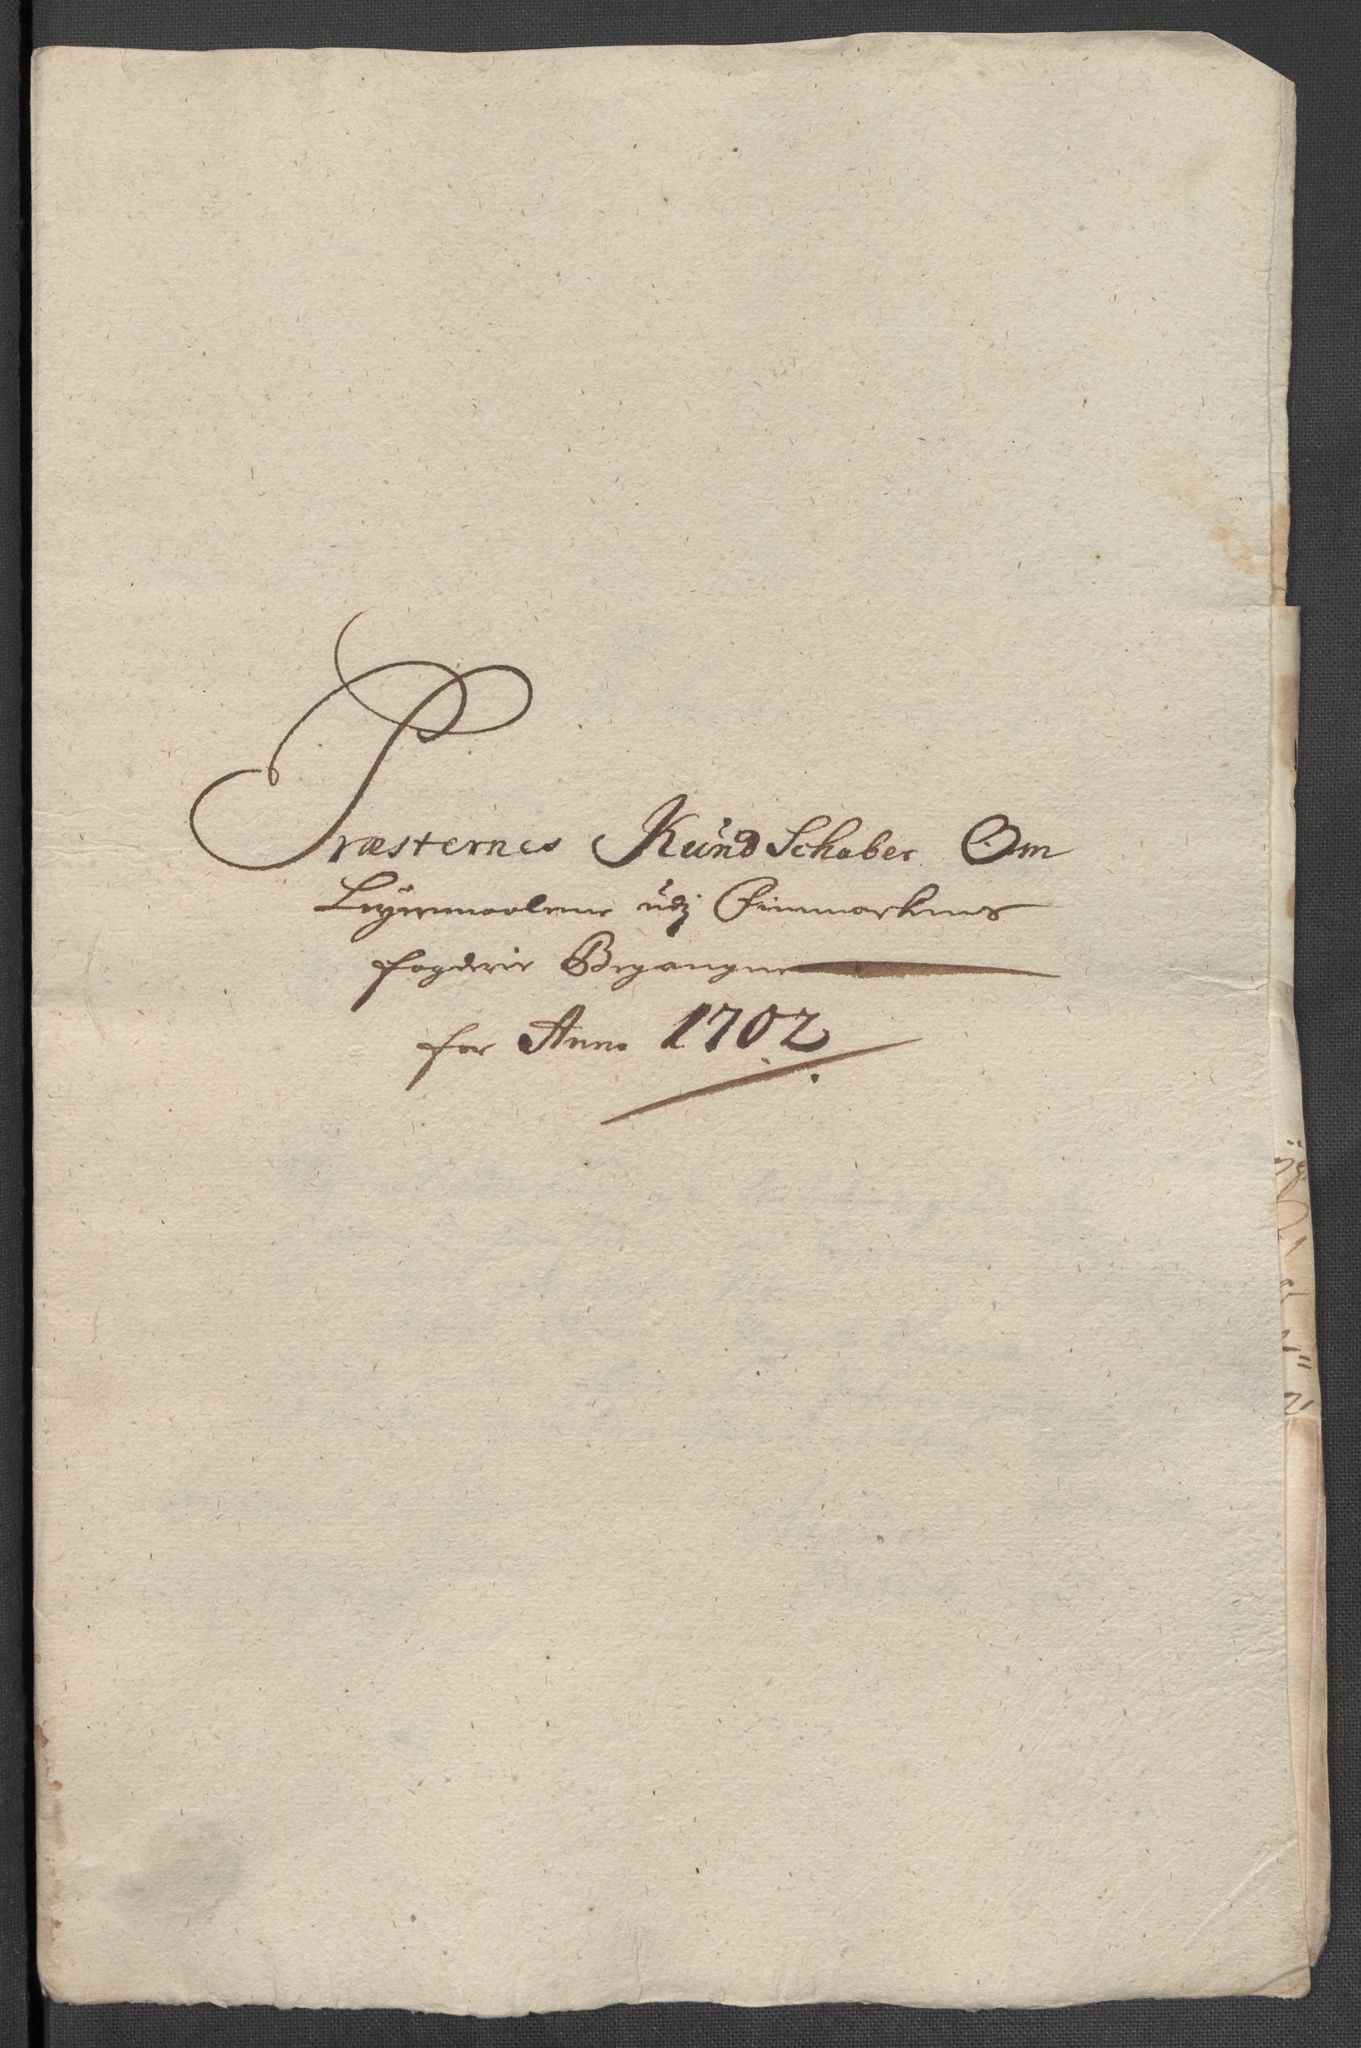 Præsternes Kund Schaber Om
Leyermaalene udj Finmarkens
fogderie Begangne
for Anno 1702